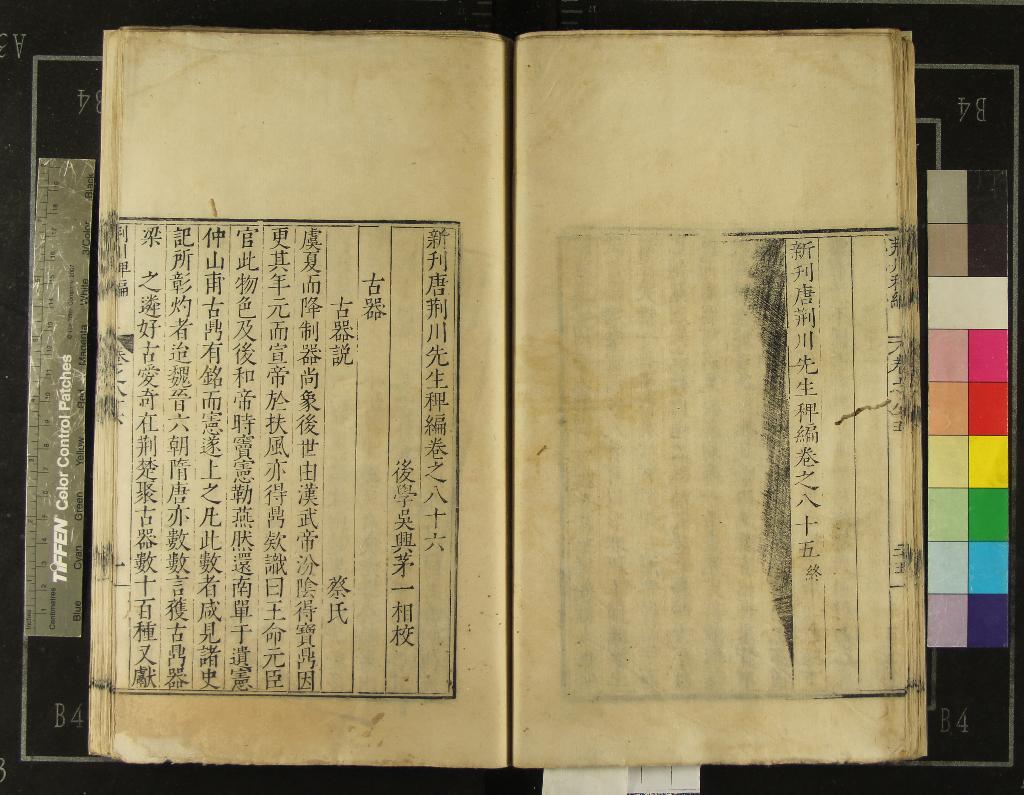 新刊唐荊川先生稗編卷之八十五終
新刊唐荊川先生稗編卷之八十六
後學吳興茅一相校
古器
古器説
蔡氏
虞夏而降制器尚象後世由漢武帝汾陰得寶鼎因
更其年元而宣帝於扶風亦得鼎欵識曰王命元臣
官此物色及後和帝時竇憲勒燕然還南單于遺憲
仲山甫古鼎有銘而憲遂上之凡此數者咸見諸史
記所彰灼者迨魏晉六朝隋唐亦數數言獲古鼎器
梁 之遴好古愛奇在荆楚聚古器數十百種又獻
TIFFEN Color Control Patches
Blue
Cyan
Green
Yellow
Red
Magenta
White
3/Color
Black
Centimetres
Inches
B4
B4
B4
B4
A3